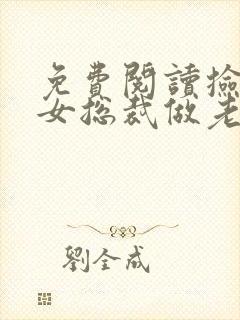 免費閱讀撿
女总裁做老
劉全成